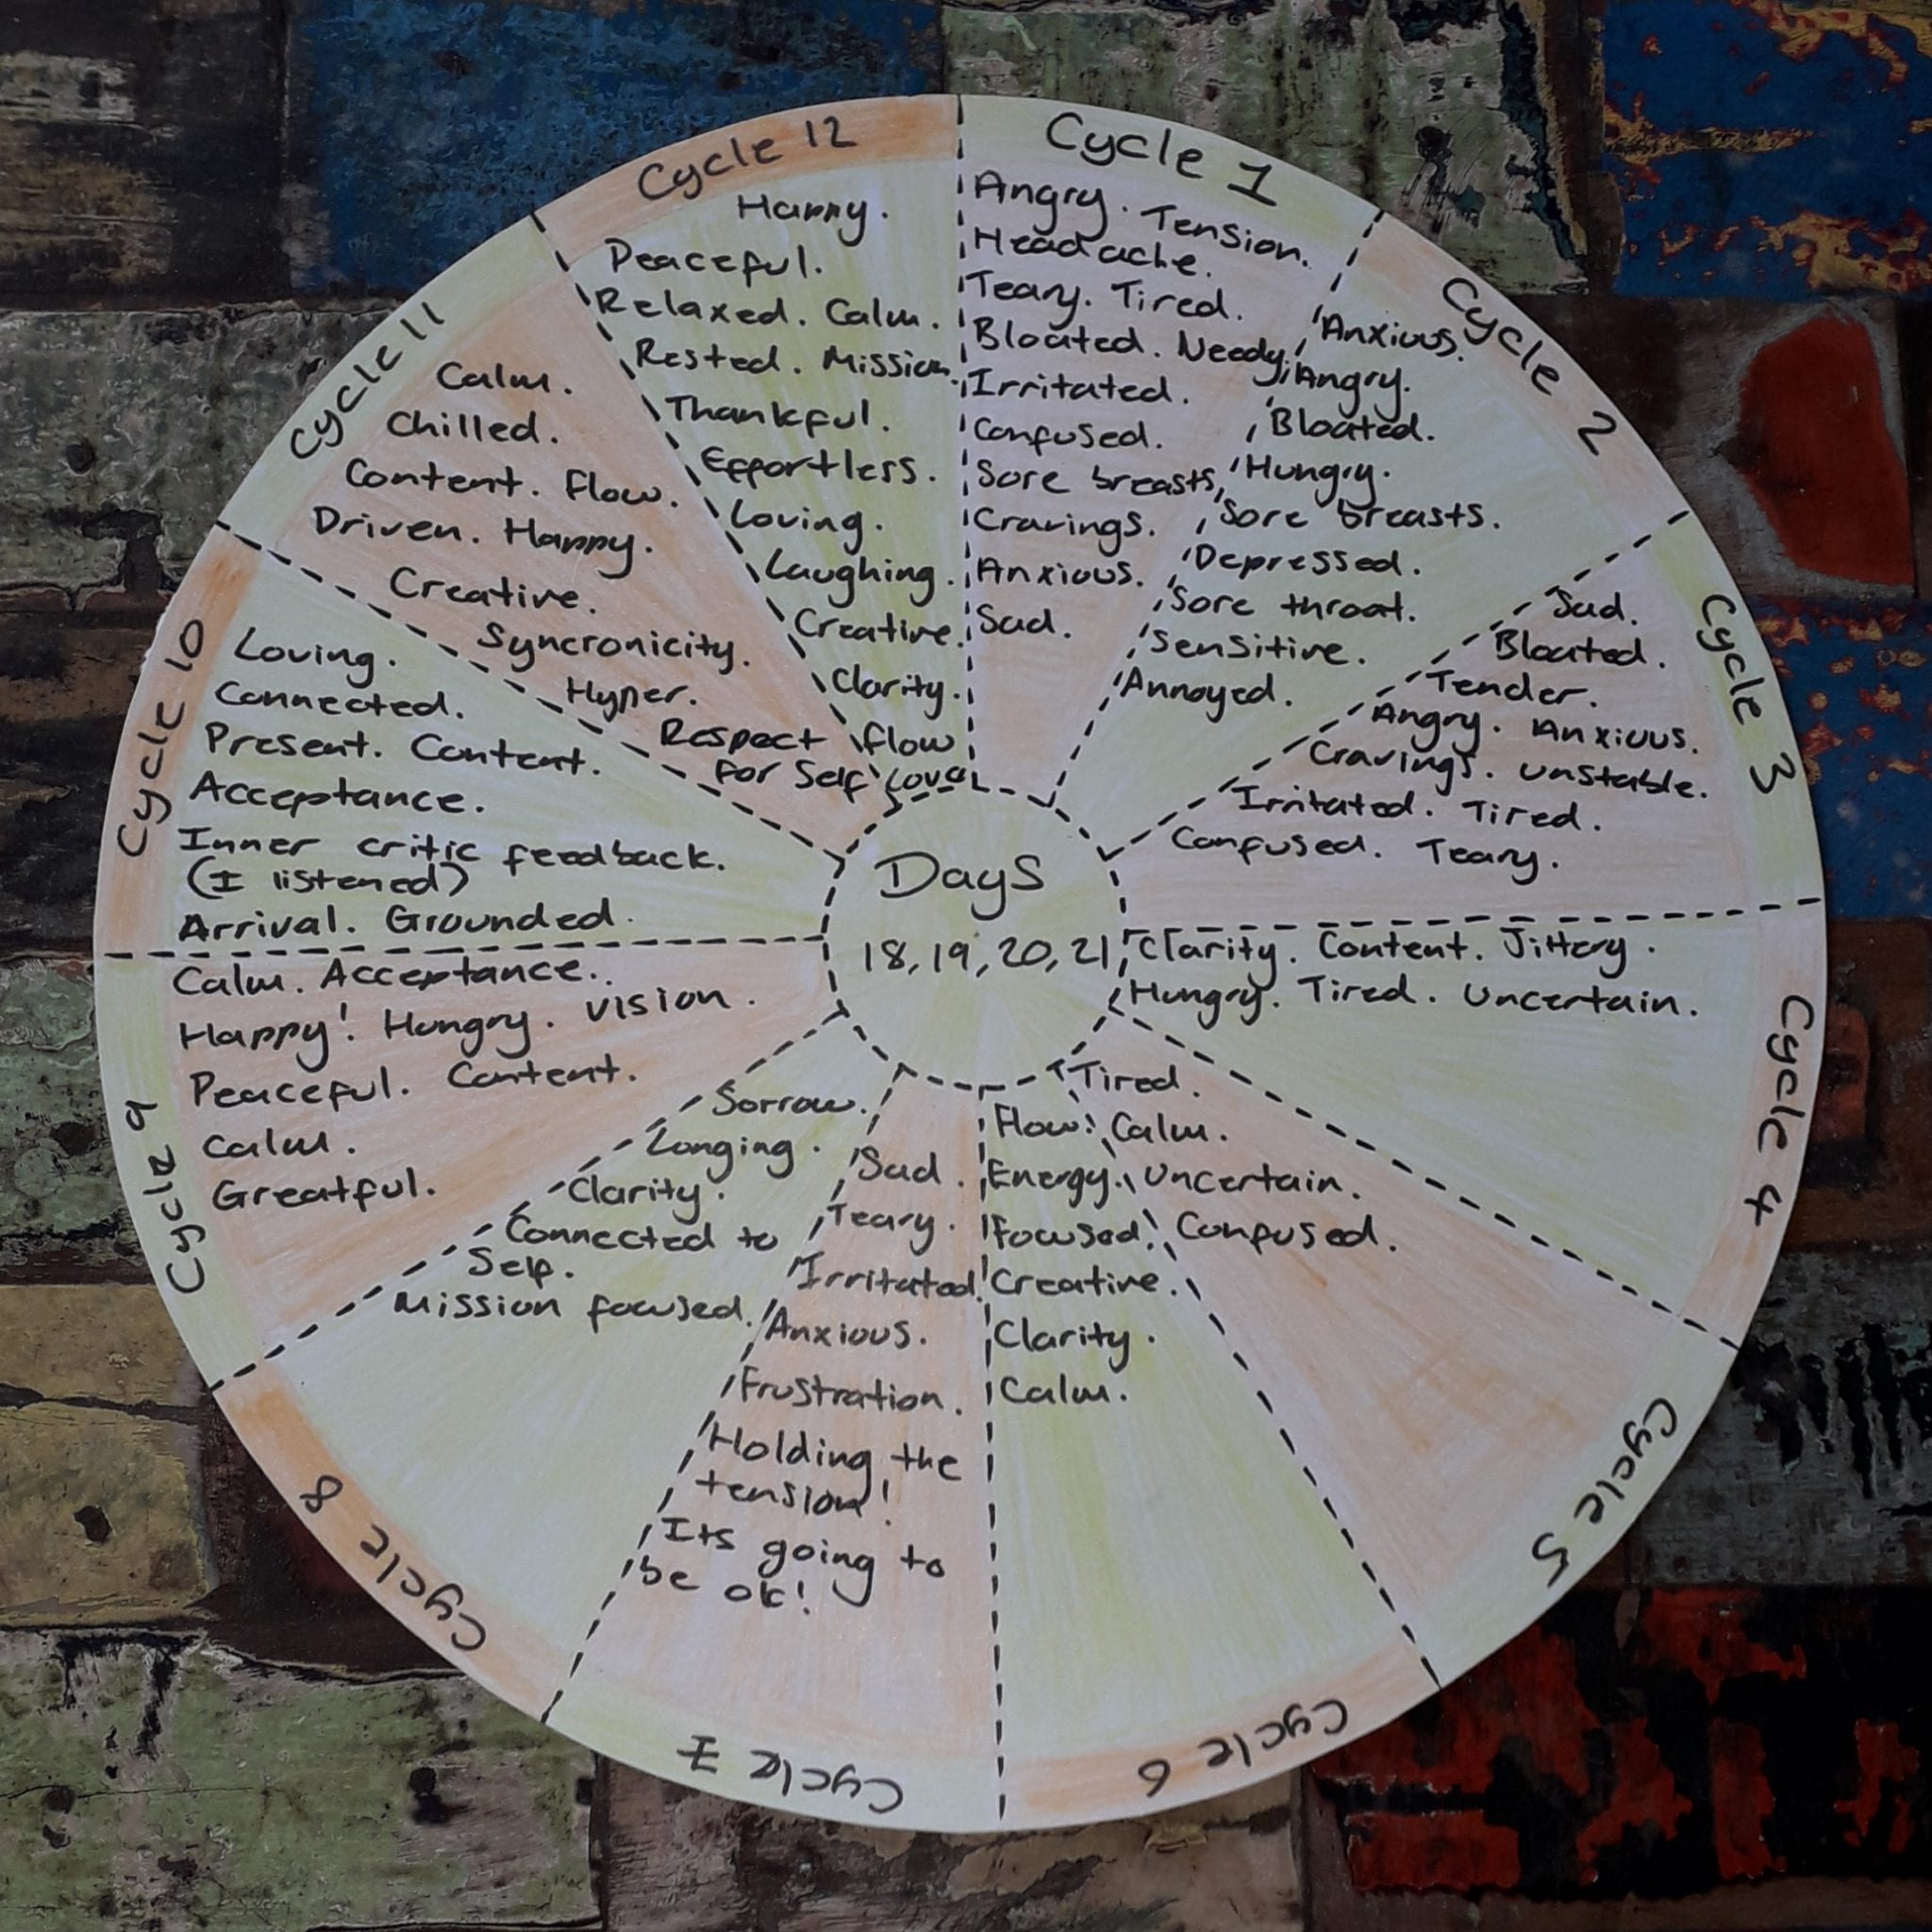 Cycle 1
Angry. Tension.
Headache.
Teary. Tired.
Bloated. Needy.
Irritated.
Confused.
Sore breasts,
Cravings.
Anxious.
Sad.
Cycle 2
Anxious.
Angry.
Bloated.
Hungry.
Sore breasts.
Depressed.
Sore throat.
Sensitive.
Annoyed.
Cycle 3
Sad.
Bloated.
Tender.
Angry. Anxious.
Cravings. Unstable.
Irritated. Tired.
Confused. Teary.
Cycle 4
Clarity. Content. Jittery.
Hungry. Tired. Uncertain.
Cycle 5
Tired.
Calm.
Uncertain.
Confused.
Cycle 6
Flow.
Energy.
Focused.
Creative.
Clarity.
Calm.
Cycle 7
Sad.
Teary.
Irritated
Anxious.
Frustration.
Holding the
tension!
Its going to
be ok!
Cycle 8
Sorrow.
Longing.
Clarity.
Connected to
Self.
Mission focused.
Cycle 9
Calm. Acceptance.
Happy! Hungry. Vision.
Peaceful. Content.
Calm.
Greatful.
Cycle 10
Loving.
Connected.
Present. Content.
Acceptance.
Inner critic feedback.
(I listened)
Arrival. Grounded.
Cycle 11
Calm.
Chilled.
Content. Flow.
Driven. Happy.
Creative.
Syncronicity.
Hyper.
Respect
for Self
Cycle 12
Happy.
Peaceful.
Relaxed. Calm.
Rested. Mission.
Thankful.
Effortless.
Loving.
Laughing.
Creative.
Clarity.
Flow
Love
Days
18, 19, 20, 21